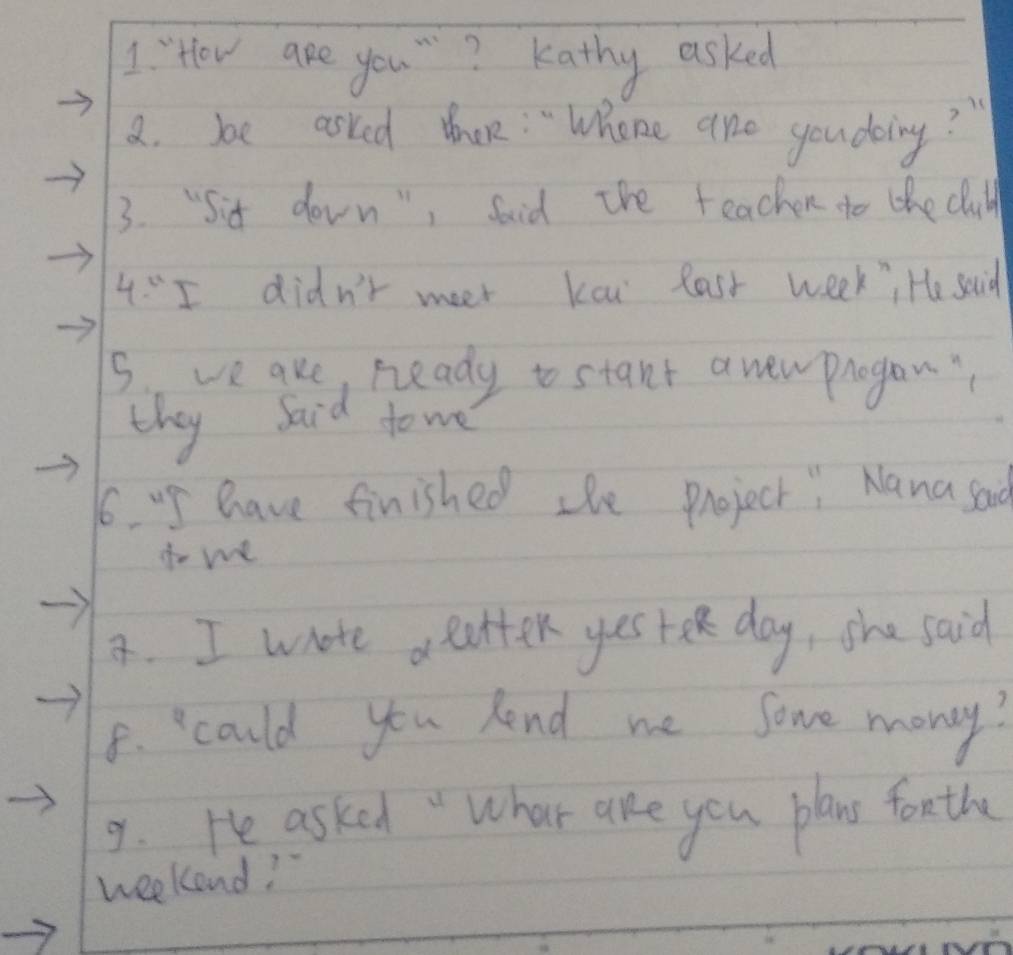 1. "How are you"? Kathy asked
→
2. Joe asked her: "Where are you doing?"
→
3. "Sit down", said the teacher to the child
→
4. "I didn't meet Kai last week", He said
→
5. we are ready to start a new progam",
they said to me
→
6. "I have finished the project", Nana said
to me
→
7. I wrote a letter yesterday, she said
→
8. "could you lend me some money?
→
9. He asked "What are you plans for the
weekend?"
→